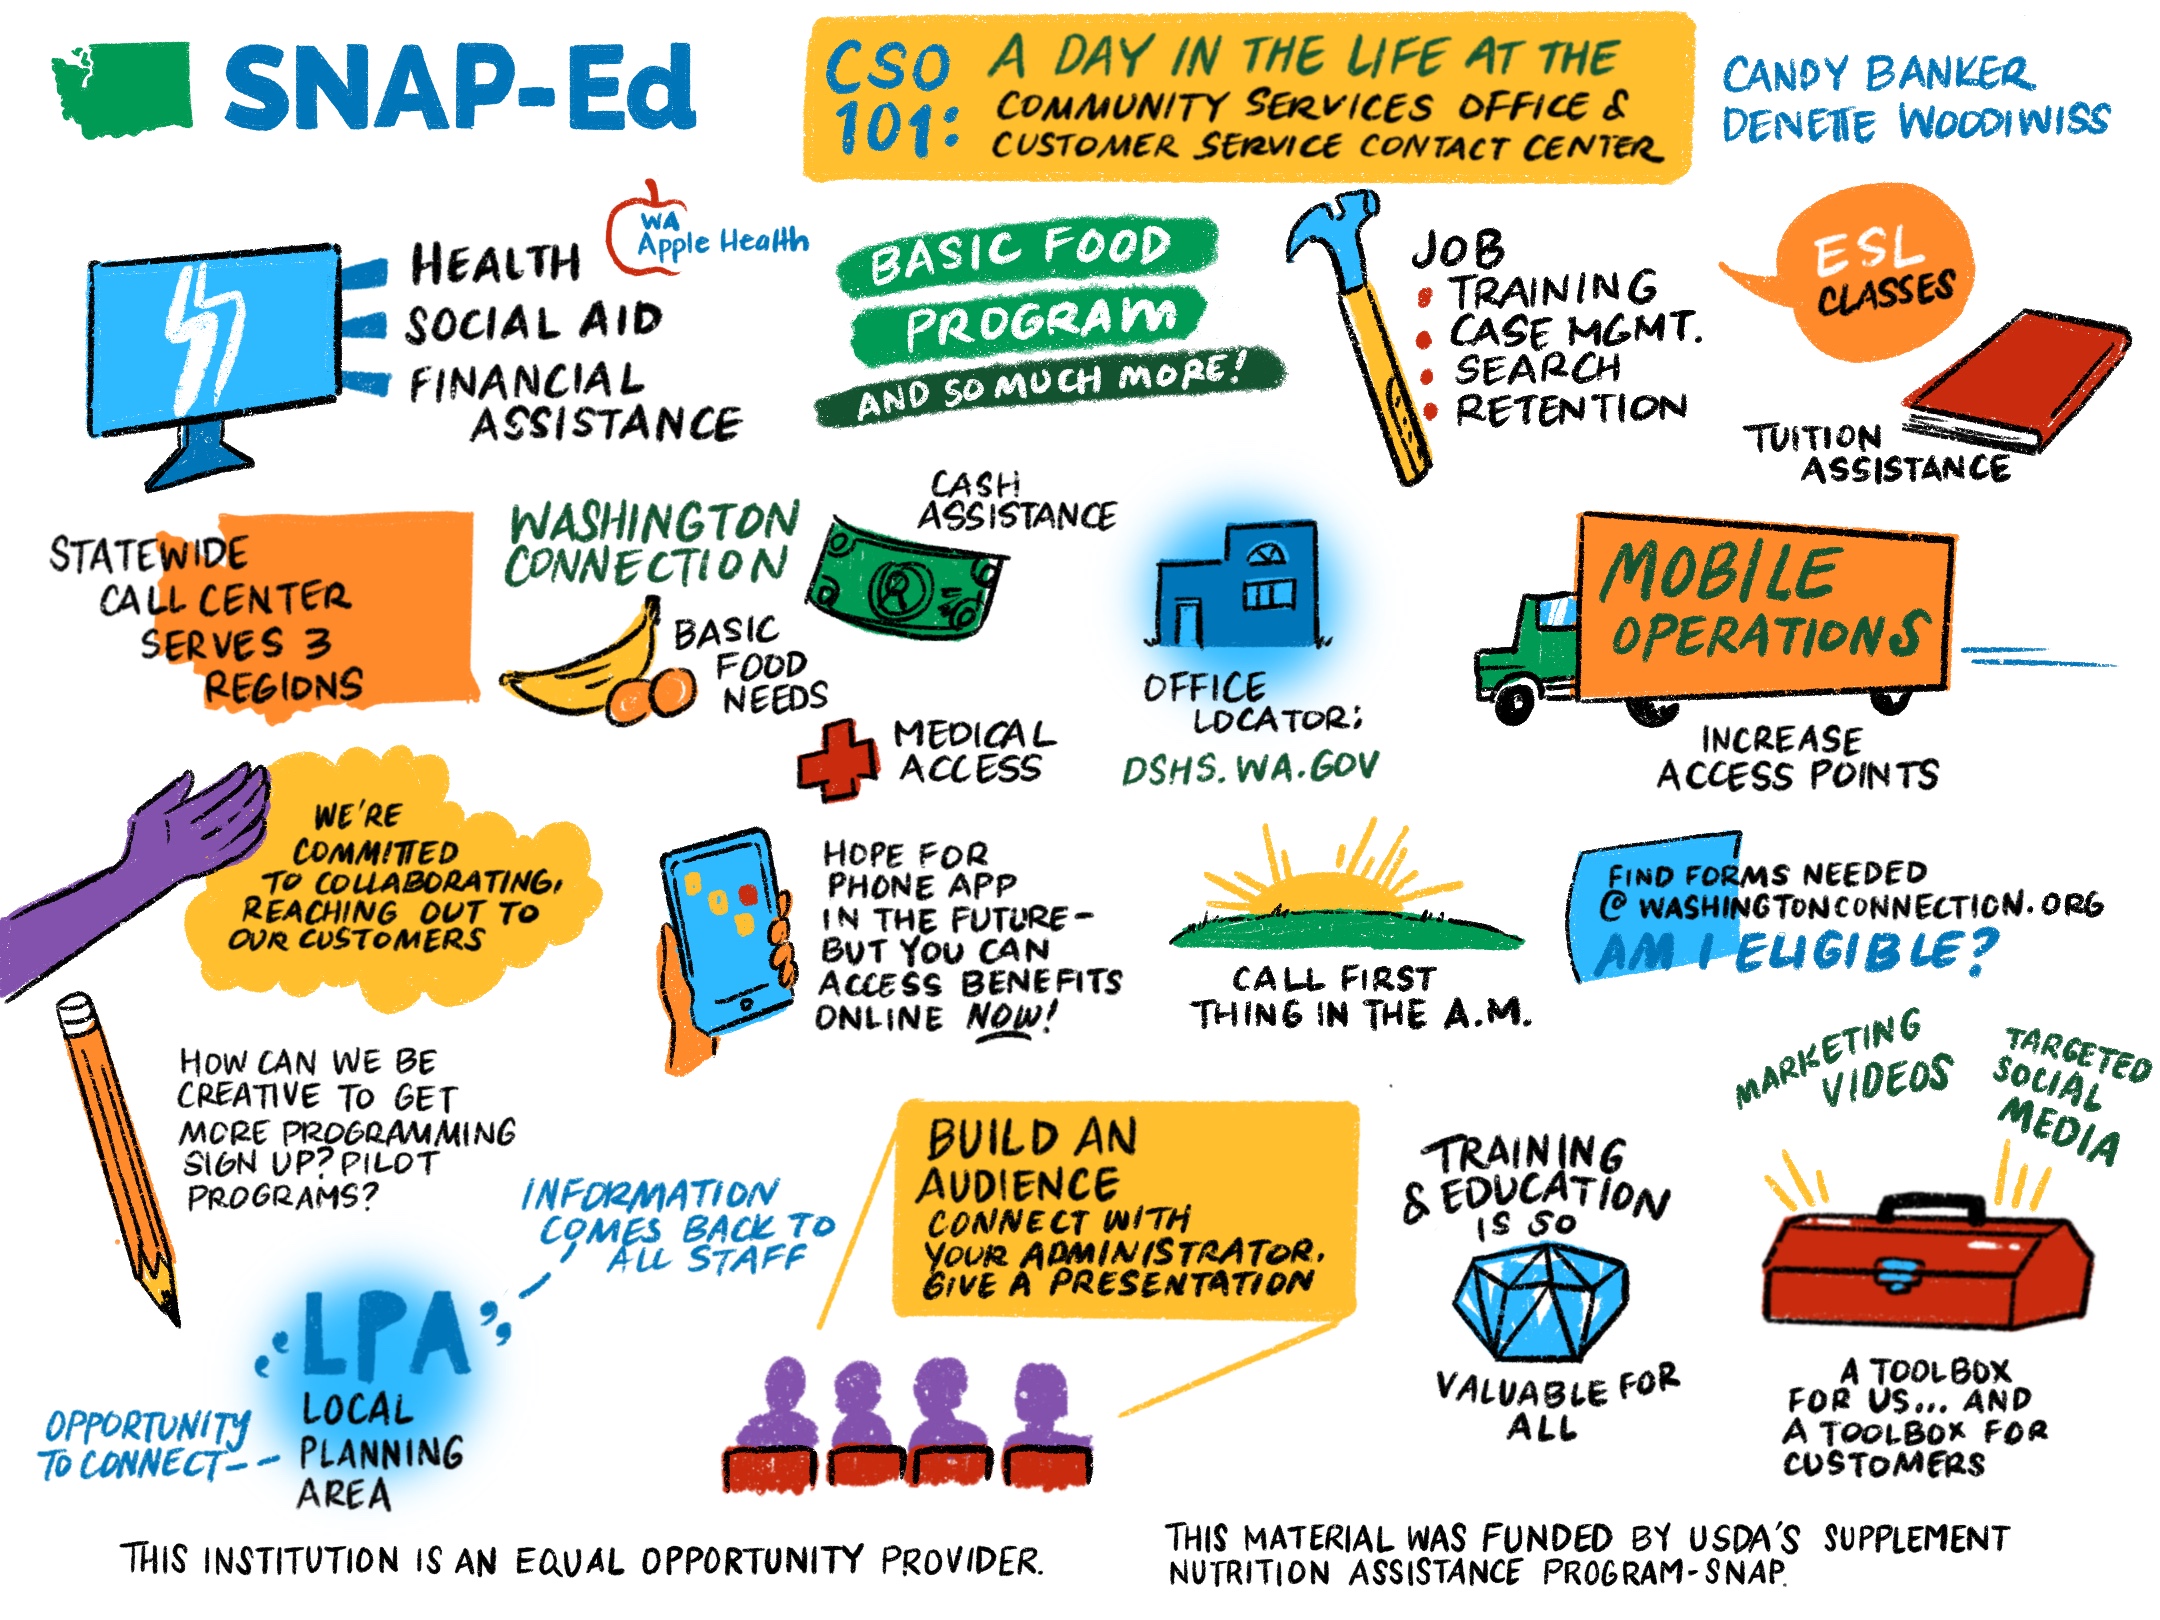 SNAP-Ed
CSO
101:
A DAY IN THE LIFE AT THE
COMMUNITY SERVICES OFFICE &
CUSTOMER SERVICE CONTACT CENTER
CANDY BANKER
DENETTE WOODIWISS
HEALTH
SOCIAL AID
FINANCIAL
ASSISTANCE
WA
Apple Health
BASIC FOOD
PROGRAM
AND SO MUCH MORE!
JOB
• TRAINING
• CASE MGMT.
• SEARCH
• RETENTION
ESL
CLASSES
TUITION
ASSISTANCE
STATEWIDE
CALL CENTER
SERVES 3
REGIONS
WASHINGTON
CONNECTION
BASIC
FOOD
NEEDS
CASH
ASSISTANCE
MEDICAL
ACCESS
OFFICE
LOCATOR:
DSHS.WA.GOV
MOBILE
OPERATIONS
INCREASE
ACCESS POINTS
WE'RE
COMMITTED
TO COLLABORATING,
REACHING OUT TO
OUR CUSTOMERS
HOPE FOR
PHONE APP
IN THE FUTURE-
BUT YOU CAN
ACCESS BENEFITS
ONLINE NOW!
CALL FIRST
THING IN THE A.M.
FIND FORMS NEEDED
@ WASHINGTONCONNECTION.ORG
AM I ELIGIBLE?
HOW CAN WE BE
CREATIVE TO GET
MORE PROGRAMMING
SIGN UP? PILOT
PROGRAMS?
INFORMATION
COMES BACK TO
ALL STAFF
LPA
LOCAL
PLANNING
AREA
OPPORTUNITY
TO CONNECT--
BUILD AN
AUDIENCE
CONNECT WITH
YOUR ADMINISTRATOR.
GIVE A PRESENTATION
TRAINING
& EDUCATION
IS SO
VALUABLE FOR
ALL
MARKETING
VIDEOS
TARGETED
SOCIAL
MEDIA
A TOOLBOX
FOR US... AND
A TOOLBOX FOR
CUSTOMERS
THIS INSTITUTION IS AN EQUAL OPPORTUNITY PROVIDER.
THIS MATERIAL WAS FUNDED BY USDA'S SUPPLEMENT
NUTRITION ASSISTANCE PROGRAM-SNAP.